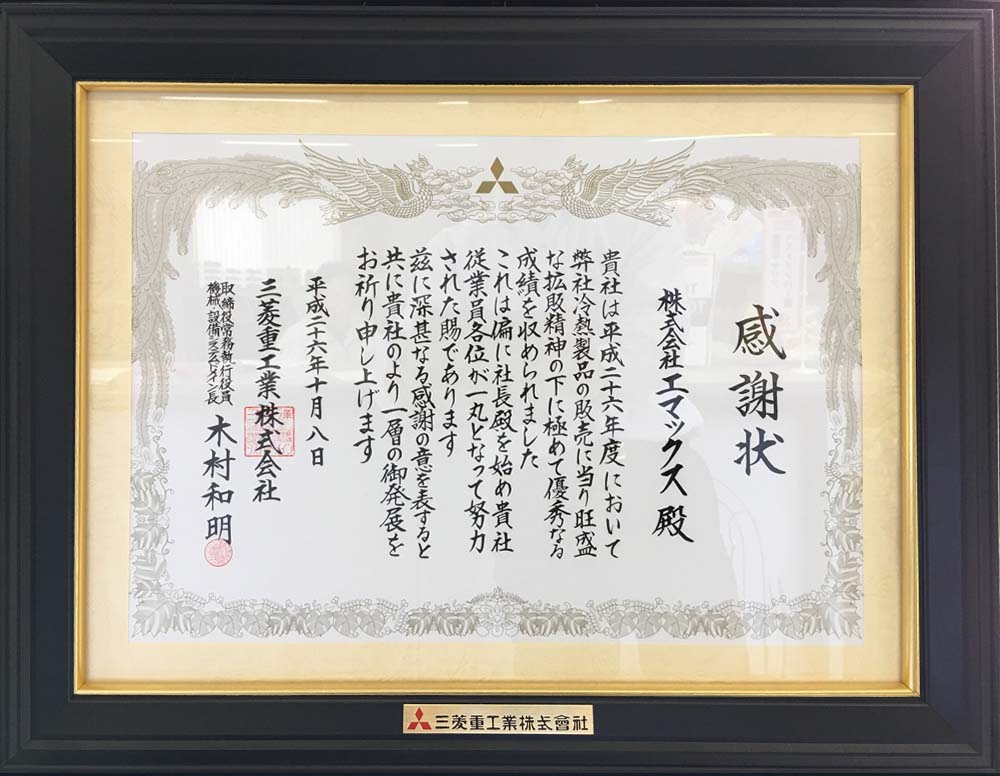 感謝状
株式会社エマックス殿
貴社は平成二十六年度において
弊社冷熱製品の販売に当り旺盛
な拡販精神の下に極めて優秀なる
成績を収められました
これは偏に社長殿を始め貴社
従業員各位が一丸となって努力
された賜であります
茲に深甚なる感謝の意を表すると
共に貴社のより一層の御発展を
お祈り申し上げます
平成二十六年十月八日
三菱重工業株式会社
取締役常務執行役員
機械・設備システムドメイン長
木村和明
三菱重工業株式會社